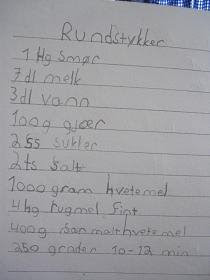 Rundstykker
1 Hg smør
7 dl melk
3 dl vann
100 g gjær
2 ss sukker
2 ts salt
1000 gram hvetemel
4 hg rugmel fint
400 g sanmalt hvetemel
250 grader 10-12 min